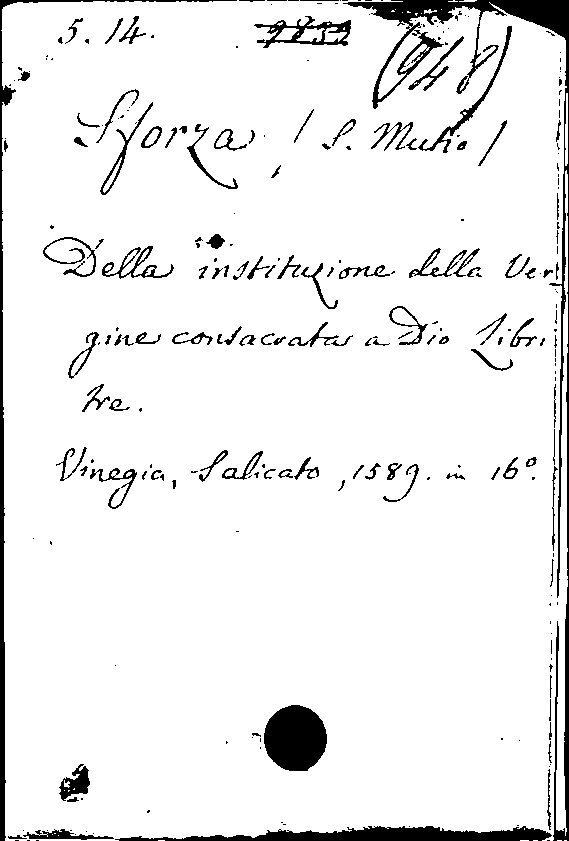 5. 14. 9832 (948)
Sforza, (S. Mutio)
Della instituzione della Ver
gine consacrata a Dio Libri
tre.
Vinegia, Salicato, 1589. in 16º.